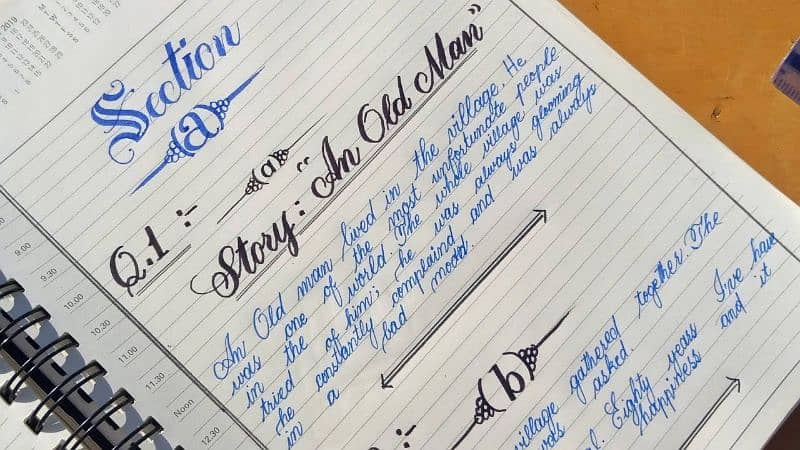 2019
Section
(a)
Q.1 :- (a)
Story: "An Old Man"
An Old man lived in the village. He
was one of the most unfortunate people
in the world. The whole village was
tried of him; he was always glooming
he constantly complaind and was always
in a bad mood.
(b)
village gathered together. The
was asked.
Eighty years I've have
happiness and it
9.00
9.30
10.00
10.30
11.00
11.30
Noon
12.30